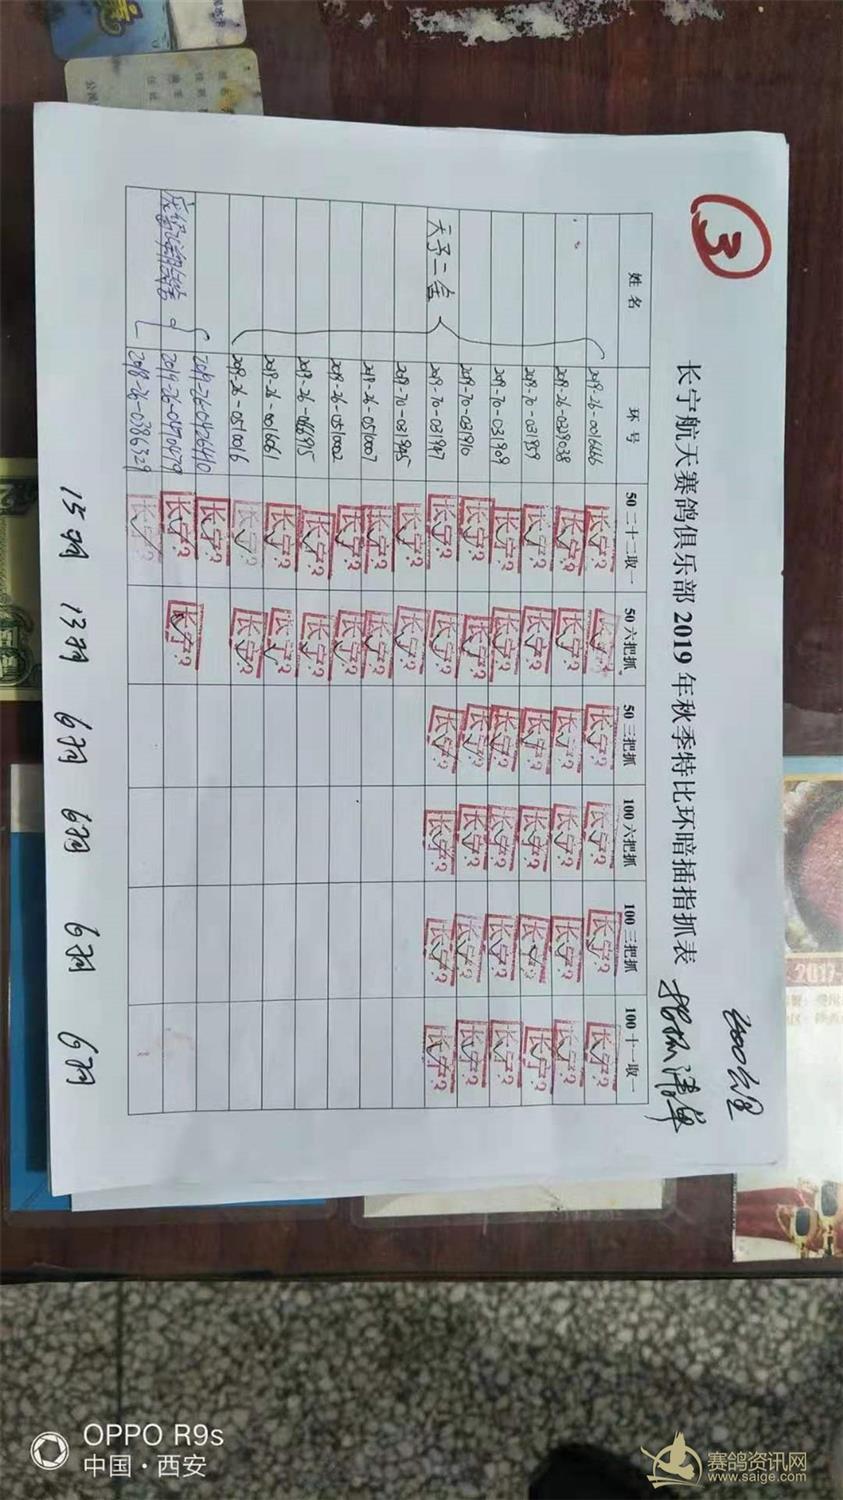 ③
长宁航天赛鸽俱乐部 2019 年秋季特比环暗插指抓表
清单
姓 名 环 号 50 二十二取一 50 六把抓 50 三把抓 100 六把抓 100 三把抓 100 十一取一
2019-26-0016666 长宁? 长宁? 长宁? 长宁? 长宁? 长宁?
2019-26-0029038 长宁? 长宁? 长宁? 长宁? 长宁? 长宁?
2019-70-031959 长宁? 长宁? 长宁? 长宁? 长宁? 长宁?
2019-70-031909 长宁? 长宁? 长宁? 长宁? 长宁? 长宁?
2019-70-031910 长宁? 长宁? 长宁? 长宁? 长宁? 长宁?
天予二室 2019-70-031947 长宁? 长宁? 长宁? 长宁? 长宁? 长宁?
2019-70-031945 长宁? 长宁?
2019-26-0510007 长宁? 长宁?
2019-26-0510002 长宁? 长宁?
2019-26-0 长宁? 长宁?
2019-26-0016061 长宁? 长宁?
2019-26-0510016 长宁? 长宁?
2019-26-0426410 长宁?
2019-26-0470479 长宁? 长宁?
2019-26-0386329 长宁?
15羽 13羽 6羽 6羽 6羽 6羽
OPPO R9s
中国·西安
赛鸽资讯网
www.saige.com